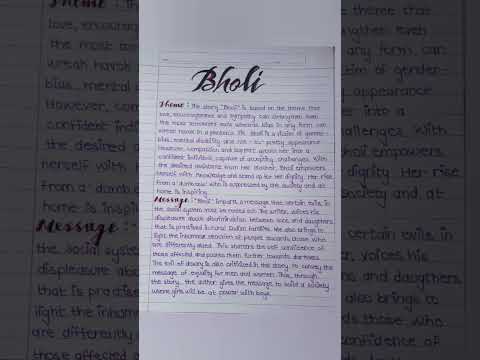 Bholi
Theme : The story "Bholi" is based on the theme that
love, encouragement and sympathy can strengthen even
the most tormented souls whereas bias in any form, can
wreak havoc in a person's life. Bholi is a victim of gender-
bias, mental disability and not - so - pretty appearance
However, compassion and support evolves her into a
confident individual, capable of accepting challenges. With
the desired assistance from her teacher, Bholi empowers
herself with knowledge and stand up for her dignity. Her rise
from a 'dumb cow' who is oppressed by the society and at
home is inspiring.
Message : "Bholi" imparts a message that certain evils in
the social system may be rooted out. The writer, voices his
displeasure about discrimination between sons and daughters
that is practised in rural Indian families. He also brings to
light the inhuman reaction of people towards those who
are differently abled. This shatters the self confidence of
those affected and pushes them further towards darkness.
The evil of dowry is also criticized in the story to convey the
message of equality for men and women. Thus, through
the story, the author gives the message to build a society
where girls will be at power with boys.